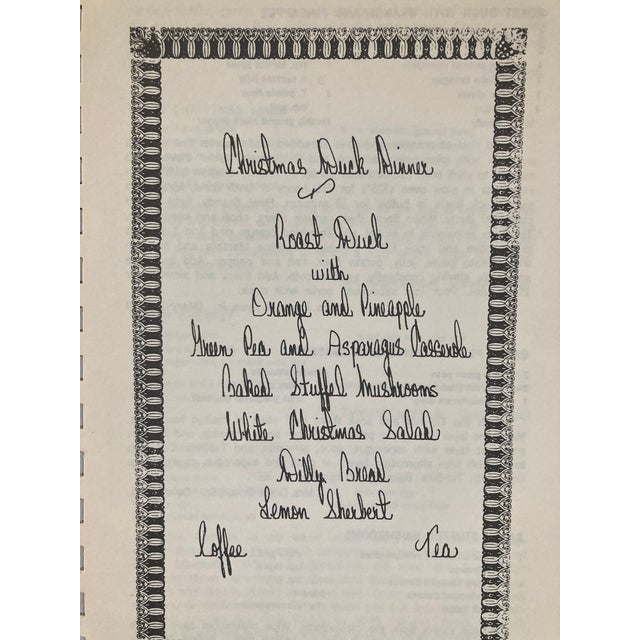 Christmas Duck Dinner
Roast Duck
with
Orange and Pineapple
Green Pea and Asparagus Casserole
Baked Stuffed Mushrooms
White Christmas Salad
Dilly Bread
Lemon Sherbert
Coffee Tea